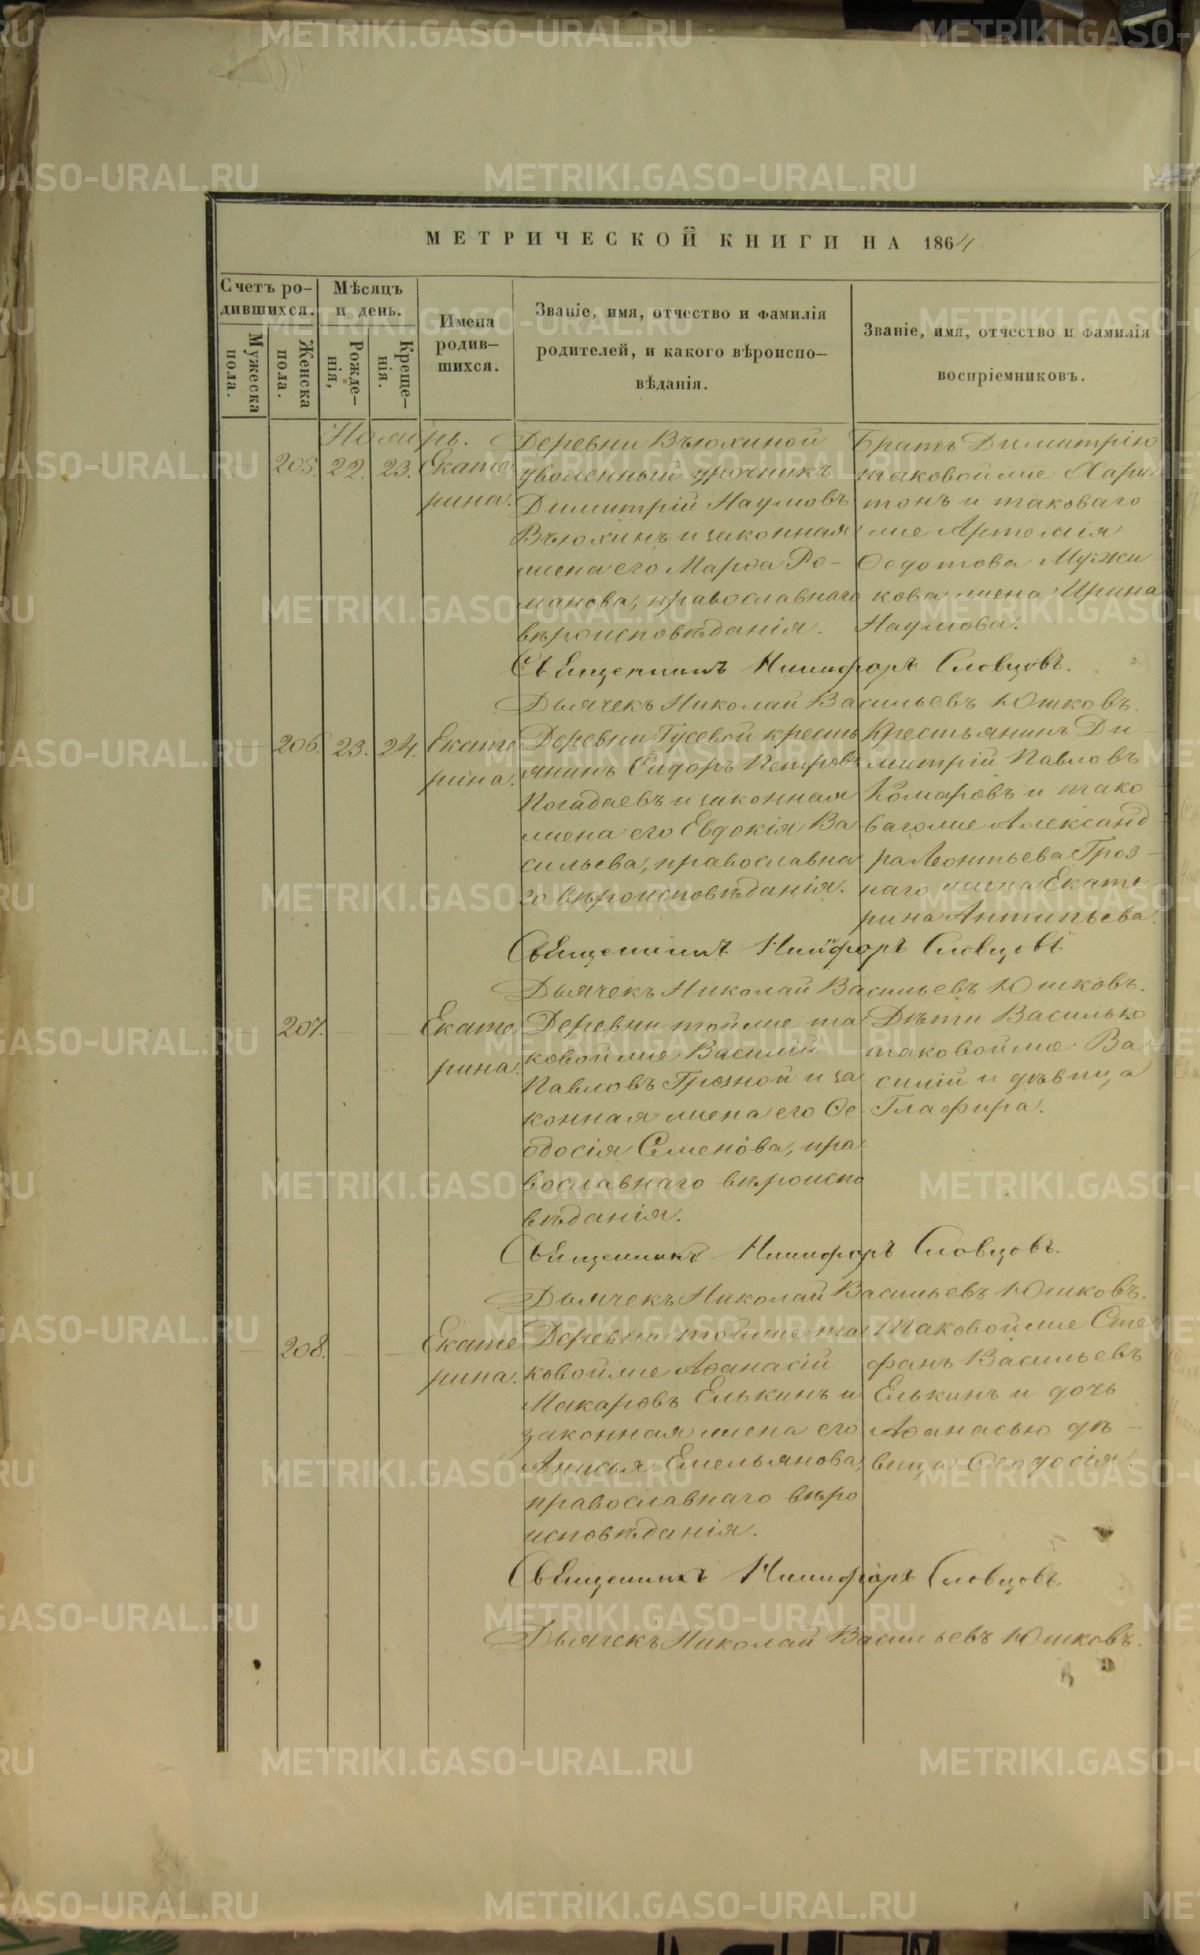 МЕТРИЧЕСКОЙ КНИГИ НА 1864
Счетъ ро-
дившихся.
Мѣсяцъ
и день.
Имена
родив-
шихся.
Званіе, имя, отчество и фамилія
родителей, и какого вѣроиспо-
вѣданія.
Званіе, имя, отчество и фамилія
воспріемниковъ.
Мужеска
пола.
Женска
пола.
Рожде-
нія,
Креще-
нія.
Ноябрь.
205. 22. 23. Екате
рина.
Деревни Вьюхиной
уволенный урочникъ
Димитрій Наумовъ
Вьюхинъ и законная
жена его Марѳа Ро-
манова, православнаго
вѣроисповѣданія.
Братъ Димитрію
таковой же Хари
тонъ и таковаго
же Артемія
Ѳедотова Мужи
кова жена Ирина
Наумова.
Священникъ Никифоръ Словцовъ.
Дьячекъ Николай Васильевъ Юшковъ.
206. 23. 24. Екате
рина.
Деревни Гусевой кресть
янинъ Сидоръ Петровъ
Погадаевъ и законная
жена его Евдокія Ва
сильева, православна
го вѣроисповѣданія.
Крестьянинъ Ди
митрій Павловъ
Комаровъ и тако
ваго же Александ
ра Леонтьева Гроз-
наго жена Екате
рина Антипьева.
Священникъ Никифоръ Словцовъ
Дьячекъ Николай Васильевъ Юшковъ.
207. Екате
рина.
Деревни той же та
ковой же Василій
Павловъ Грозной и за
конная жена его Ѳе
одосія Семенова, пра
вославнаго вѣроиспо
вѣданія.
Дѣти Василью
таковой же Ва
силій и дѣвица
Глафира.
Священникъ Никифоръ Словцовъ.
Дьячекъ Николай Васильевъ Юшковъ.
208. Екате
рина.
Деревни той же та
ковой же Аѳанасій
Макаровъ Елькинъ и
законная жена его
Анисья Емельянова,
православнаго вѣро
исповѣданія.
Таковой же Сте
фанъ Васильевъ
Елькинъ и дочь
Аѳанасью дѣ-
вица Ѳеодосія.
Священникъ Никифоръ Словцовъ.
Дьячекъ Николай Васильевъ Юшковъ.
METRIKI.GASO-URAL.RU